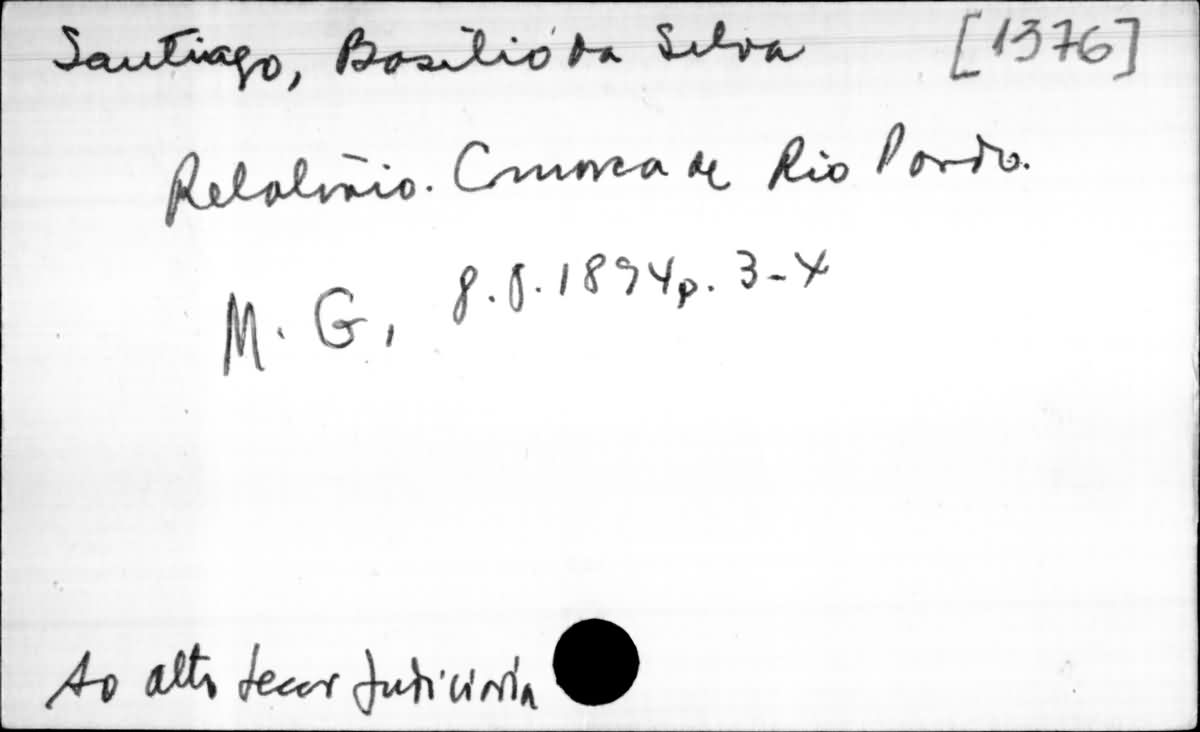 Santiago, Basílio da Silva [1376]
Relatório. Comarca de Rio Pardo.
M. G., 8.8.1894 p. 3-4
Ao alto Secar Judiciaria